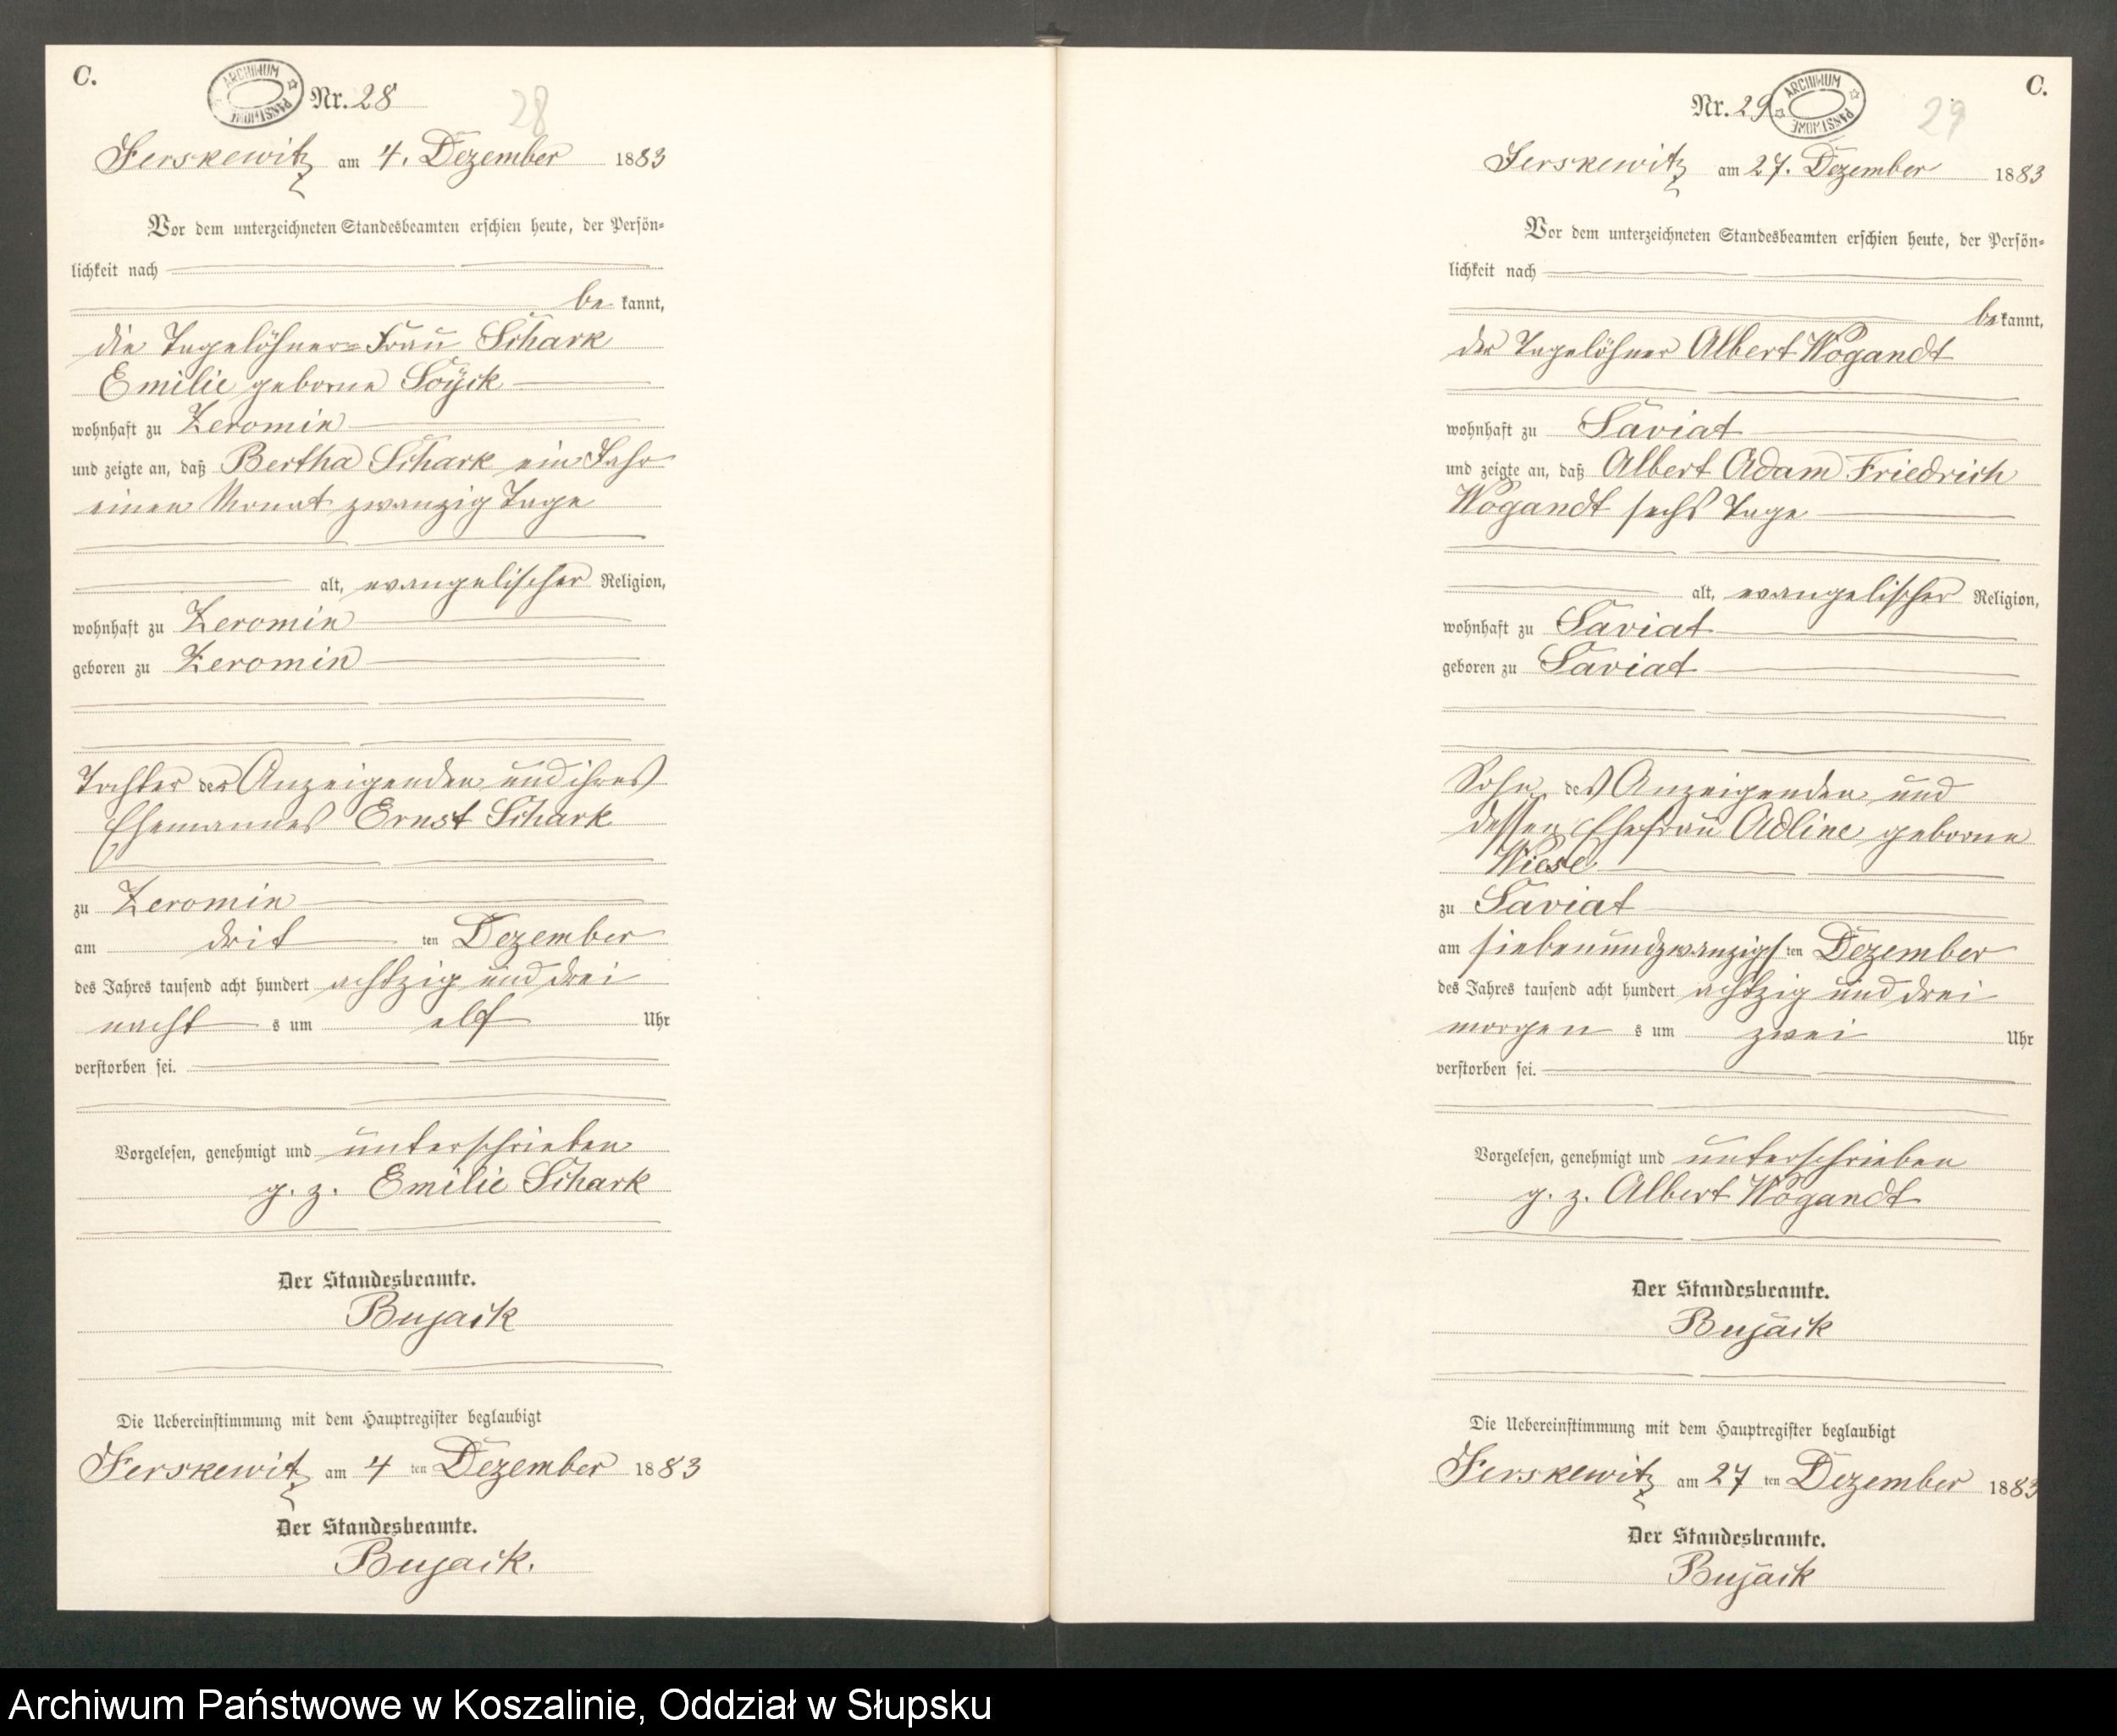 C.
ARCHIWUM PAŃSTWOWE
Nr. 28
28
Jerskewitz am 4. Dezember 1883
Vor dem unterzeichneten Standesbeamten erschien heute, der Persön=
lichkeit nach
be kannt,
die Tagelöhner=Frau Schark
Emilie geborne Soÿck
wohnhaft zu Zeromin
und zeigte an, daß Bertha Schark ein Jahr
einen Monat zwanzig Tage
alt, evangelischer Religion,
wohnhaft zu Zeromin
geboren zu Zeromin
Tochter der Anzeigenden und ihres
Ehemannes Ernst Schark
zu Zeromin
am drit ten Dezember
des Jahres tausend acht hundert achtzig und drei
nacht s um elf Uhr
verstorben sei.
Vorgelesen, genehmigt und unterschrieben
g. z. Emilie Schark
Der Standesbeamte.
Bujack
Die Uebereinstimmung mit dem Hauptregister beglaubigt
Jerskewitz am 4 ten Dezember 1883
Der Standesbeamte.
Bujack.
C.
Nr. 29
ARCHIWUM PAŃSTWOWE
29
Jerskewitz am 27. Dezember 1883
Vor dem unterzeichneten Standesbeamten erschien heute, der Persön=
lichkeit nach
be kannt,
der Tagelöhner Albert Wogandt
wohnhaft zu Saviat
und zeigte an, daß Albert Adam Friedrich
Wogandt sechs Tage
alt, evangelischer Religion,
wohnhaft zu Saviat
geboren zu Saviat
Sohn des Anzeigenden und
dessen Ehefrau Adline geborne
Wiese
zu Saviat
am siebenundzwanzigs ten Dezember
des Jahres tausend acht hundert achtzig und drei
morgen s um zwei Uhr
verstorben sei.
Vorgelesen, genehmigt und unterschrieben
g. z. Albert Wogandt
Der Standesbeamte.
Bujack
Die Uebereinstimmung mit dem Hauptregister beglaubigt
Jerskewitz am 27 ten Dezember 1883
Der Standesbeamte.
Bujack
Archiwum Państwowe w Koszalinie, Oddział w Słupsku